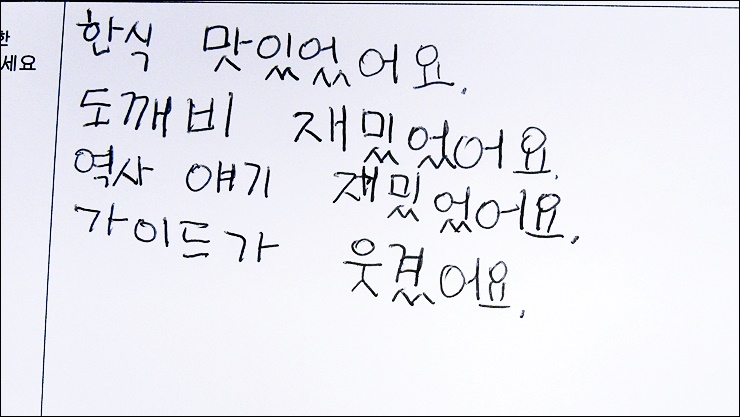 한
세요
한식 맛있었어요.
도깨비 재밌었어요.
역사 얘기 재밌었어요.
가이드가 웃겼어요.